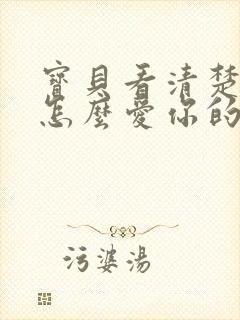 寶貝看清楚
怎麼愛你的
污婆湯